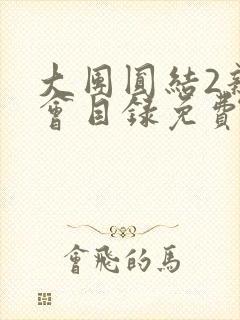 大團圓結2新
會目錄免費
會飛的馬